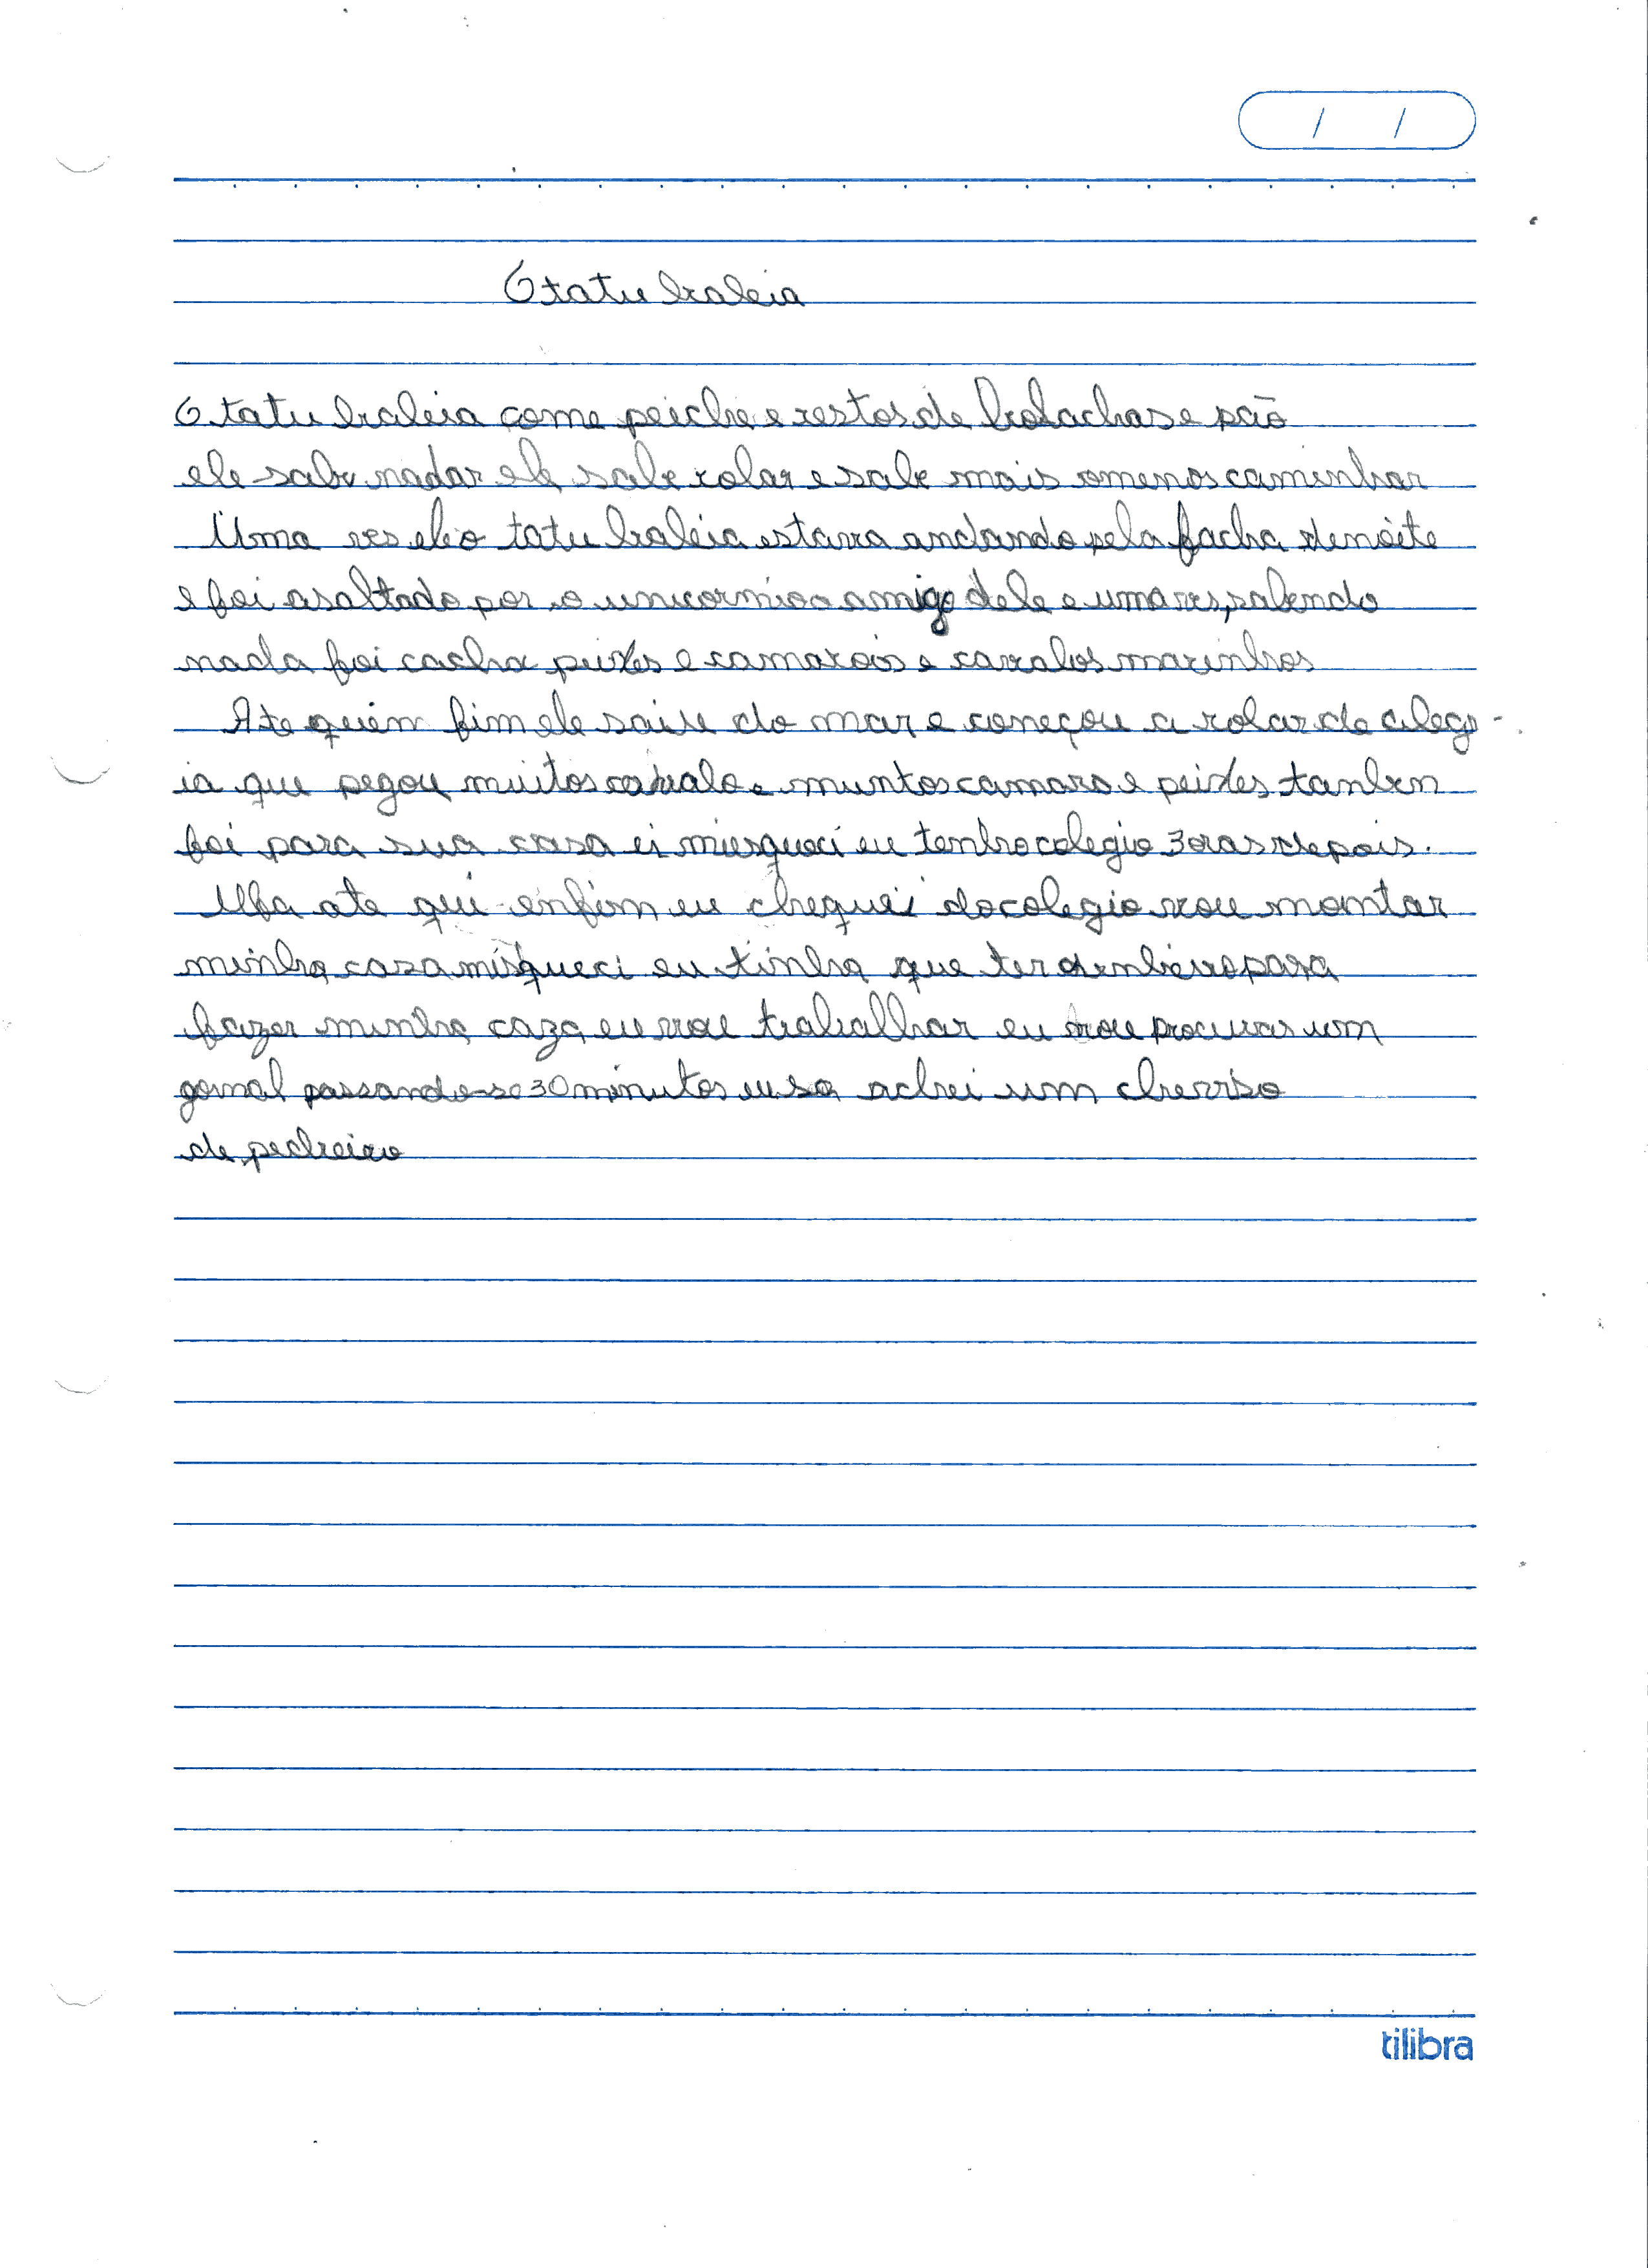 O tatu baleia
O tatu baleia come peiche e restos de bolachas e pão
ele sabe nadar ele sabe rolar e sabe mais omenos caminhar
Uma ves ele o tatu baleia estava andando pela facha denoite
e foi asaltado por o unicornio o amigo dele e uma ves, sabendo
nada foi cacha peixes e camarois e cavalos marinhos
Ate quem fim ele saiu do mar e começou a rolar de aleg-
ia que pegou muitos cavalo e muntos camaro e peixes tanben
foi para sua casa ei miesqueci eu tenho colegio 3 oras depois.
Uba ate qui enfim eu cheguei do colegio vou montar
minha casa misqueci eu tinha que ter dinheiro para
fazer minha caza eu vou trabalhar eu vou procuras um
gornal passando-se 30 minutos eu so achei um cherviso
de pedreiro
tilibra